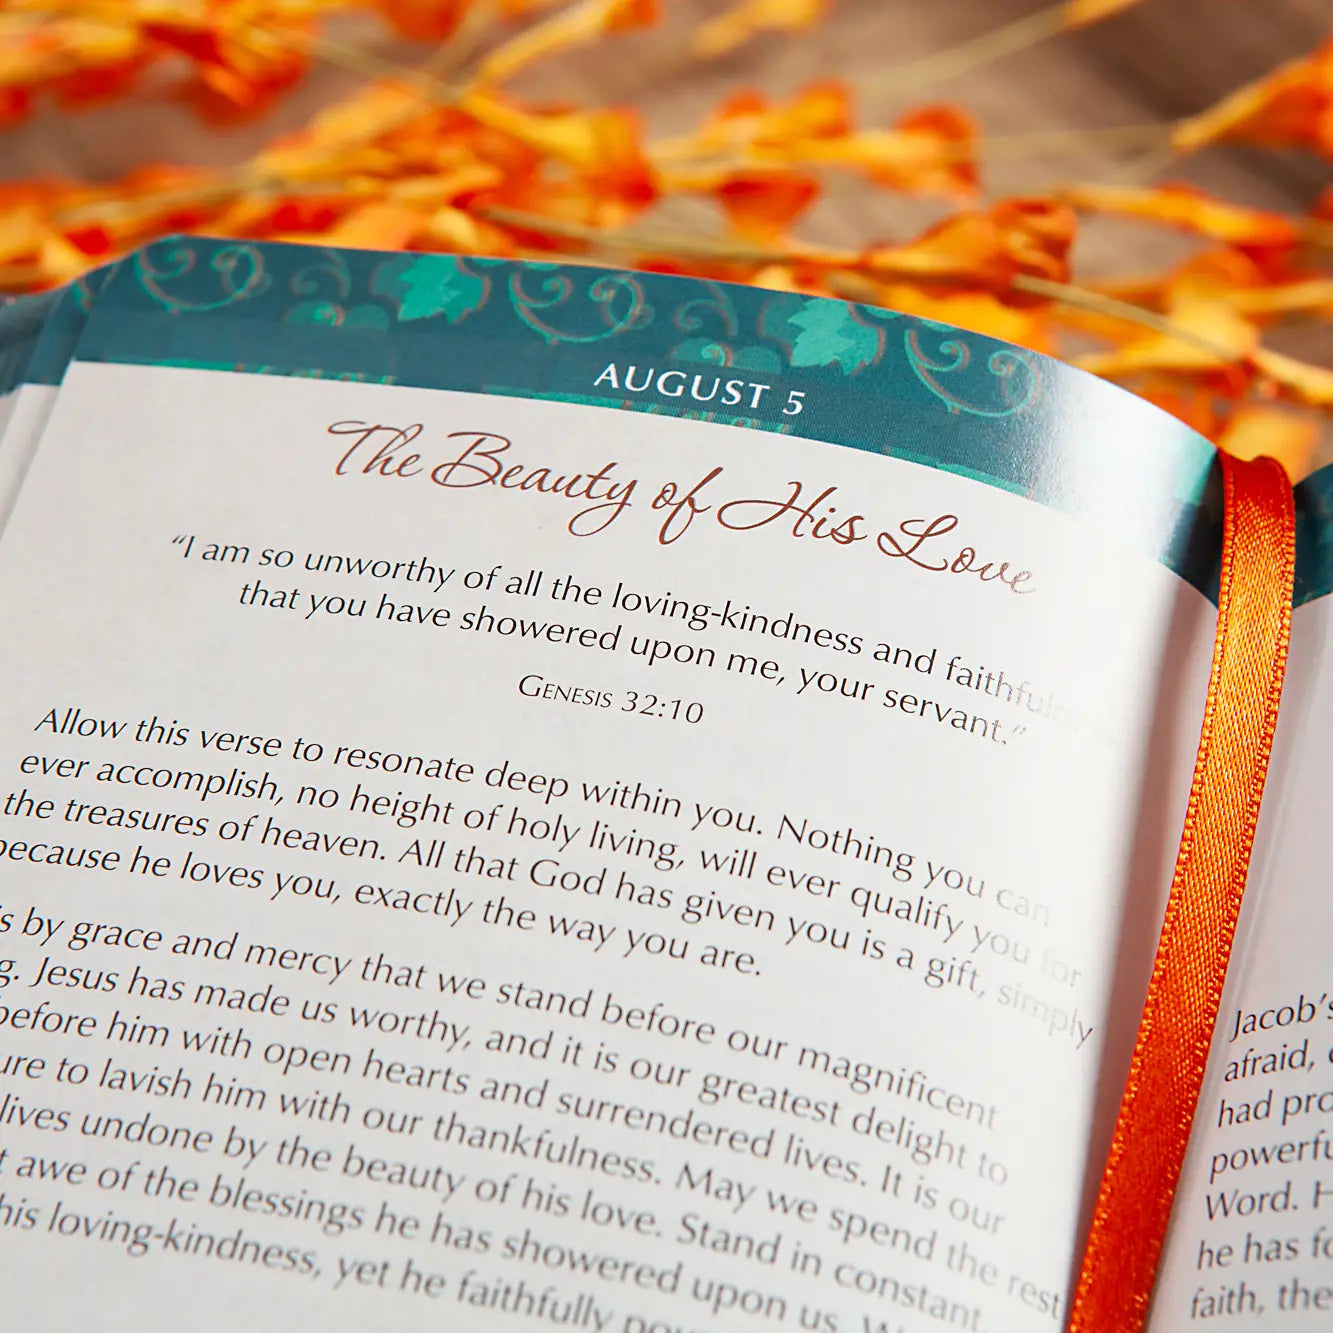 AUGUST 5
The Beauty of His Love
“I am so unworthy of all the loving-kindness and faithfulness
that you have showered upon me, your servant.”
GENESIS 32:10
Allow this verse to resonate deep within you. Nothing you can
ever accomplish, no height of holy living, will ever qualify you for
the treasures of heaven. All that God has given you is a gift, simply
because he loves you, exactly the way you are.
by grace and mercy that we stand before our magnificent
Jesus has made us worthy, and it is our greatest delight to
before him with open hearts and surrendered lives. It is our
to lavish him with our thankfulness. May we spend the rest
lives undone by the beauty of his love. Stand in constant
awe of the blessings he has showered upon us.
his loving-kindness, yet he faithfully
Jacob's
afraid,
had
Word.
he has
faith, the